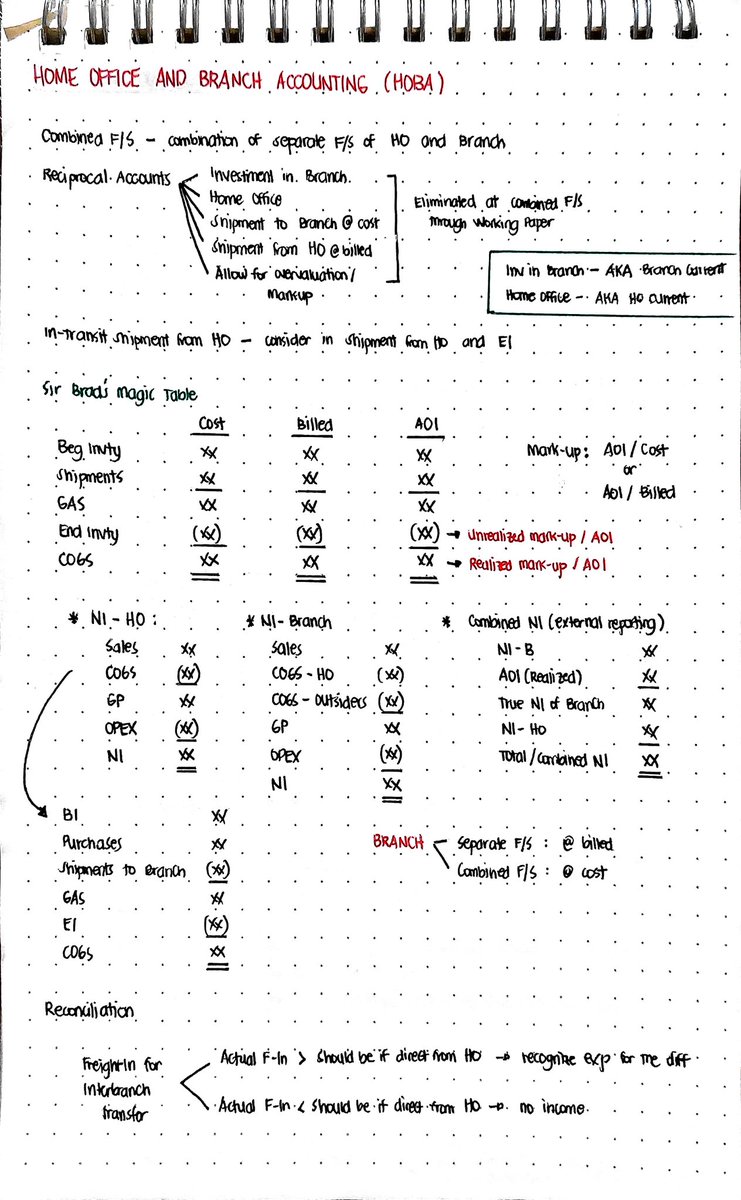 HOME OFFICE AND BRANCH ACCOUNTING (HOBA)
Combined F/S – combination of separate F/S of HO and Branch
Reciprocal Accounts
Investment in Branch
Home Office
Shipment to Branch @ cost
Shipment from HO @ billed
Allow for overvaluation/
markup
Eliminated at combined F/S
through Working Paper
Inv in Branch – AKA Branch Current
Home Office – AKA HO Current
In-Transit Shipment from HO – consider in Shipment from HO and EI
Sir Brad's Magic Table
Cost Billed AOI
Beg Invty xx xx xx
Shipments xx xx xx
GAS xx xx xx
End Invty (xx) (xx) (xx) → Unrealized mark-up / AOI
COGS xx xx xx → Realized mark-up / AOI
Mark-up: AOI / Cost
or
AOI / Billed
* NI – HO:
Sales xx
COGS (xx)
GP xx
OPEX (xx)
NI xx
BI xx
Purchases xx
Shipments to Branch (xx)
GAS xx
EI (xx)
COGS xx
* NI – Branch
Sales xx
COGS – HO (xx)
COGS – Outsiders (xx)
GP xx
OPEX (xx)
NI xx
* Combined NI (external reporting)
NI – B xx
AOI (Realized) xx
True NI of Branch xx
NI – HO xx
Total / Combined NI xx
BRANCH
Separate F/S : @ billed
Combined F/S : @ cost
Reconciliation
Freight-In for
Interbranch
transfer
Actual F-In > should be if direct from HO → recognize exp for the diff
Actual F-In < should be if direct from HO → no income